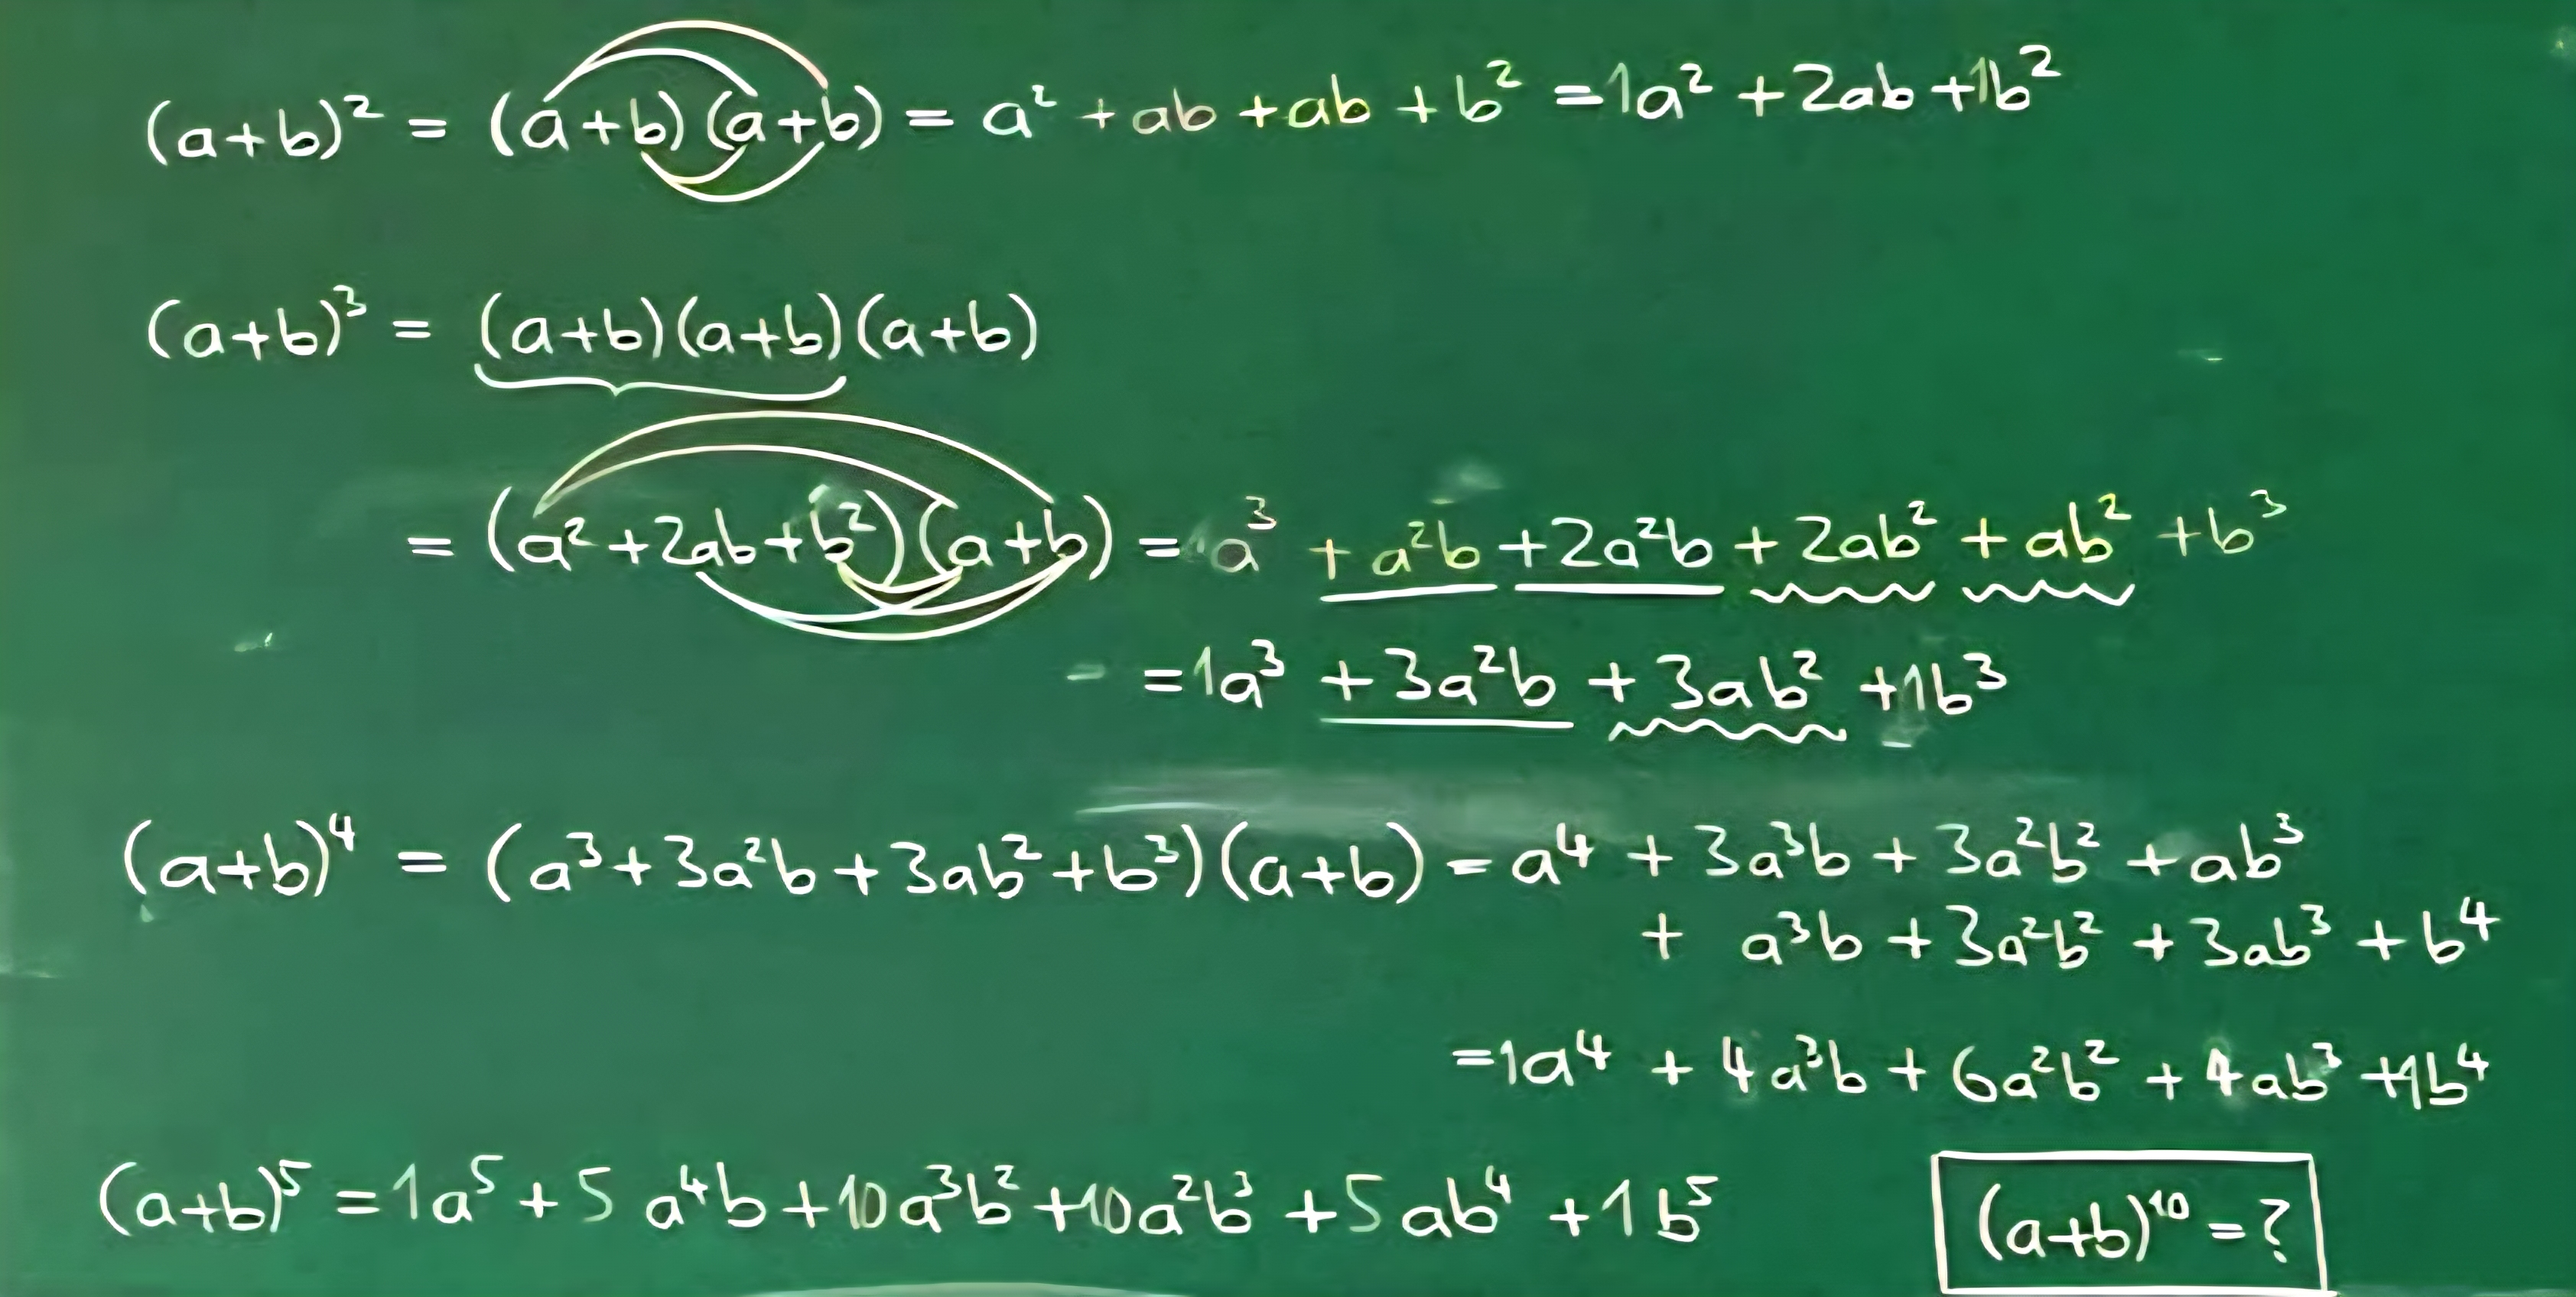 (a+b)² = (a+b)(a+b) = a² + ab + ab + b² = 1a² + 2ab + 1b²
(a+b)³ = (a+b)(a+b)(a+b)
= (a² + 2ab + b²)(a+b) = 1a³ + a²b + 2a²b + 2ab² + ab² + b³
= 1a³ + 3a²b + 3ab² + 1b³
(a+b)⁴ = (a³ + 3a²b + 3ab² + b³)(a+b) = a⁴ + 3a³b + 3a²b² + ab³
+ a³b + 3a²b² + 3ab³ + b⁴
= 1a⁴ + 4a³b + 6a²b² + 4ab³ + 1b⁴
(a+b)⁵ = 1a⁵ + 5a⁴b + 10a³b² + 10a²b³ + 5ab⁴ + 1b⁵
(a+b)¹⁰ = ?